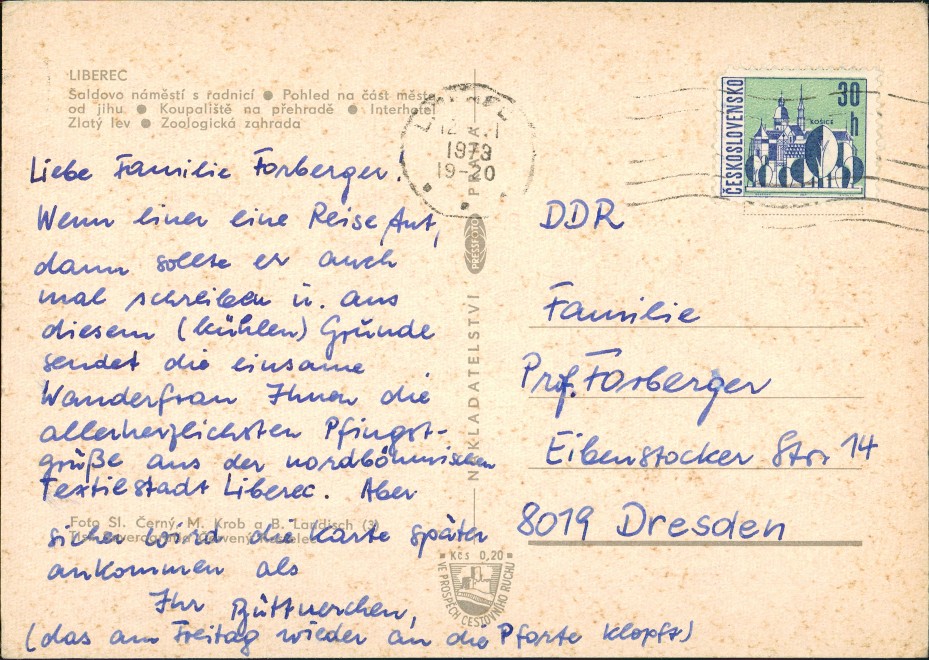 LIBEREC
Šaldovo náměstí s radnicí ● Pohled na část města
od jihu ● Koupaliště na přehradě ● Interhotel
Zlatý lev ● Zoologická zahrada
Liebe Familie Forberger.
Wenn einer eine Reise tut,
dann sollte er auch
mal schreiben u. aus
diesem (kühlen) Grunde
sendet die einsame
Wanderfrau Ihnen die
allerherzlichsten Pfingst-
grüße aus der nordböhmischen
Textilstadt Liberec. Aber
sicher wird die Karte später
ankommen als
Ihr Büttnerchen,
(das am Freitag wieder an die Pforte klopft)
Foto Sl. Černý, M. Krob a B. Landisch (3)
1973
19-20
NAKLADATELSTVÍ
PRESSFOTO
PRAHA
Kčs 0,20
VE PROSPĚCH CESTOVNÍHO RUCHU
ČESKOSLOVENSKO
30
h
KOŠICE
DDR
Familie
Prof. Forberger
Eibenstocker Str. 14
8019 Dresden